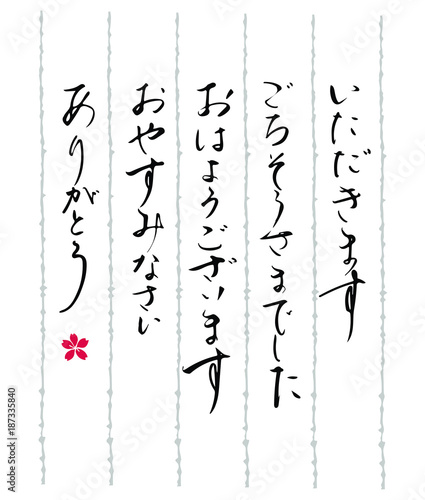 いただきます
ごちそうさまでした
おはようございます
おやすみなさい
ありがとう
Adobe Stock | #187335840